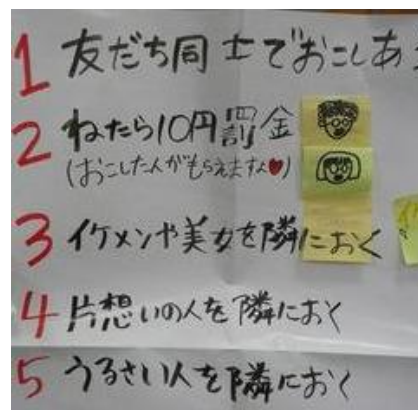 1 友だち同士でおこしあ
2 ねたら10円罰金
(おこした人がもらえます♥)
3 イケメンや美女を隣におく
4 片想いの人を隣におく
5 うるさい人を隣におく